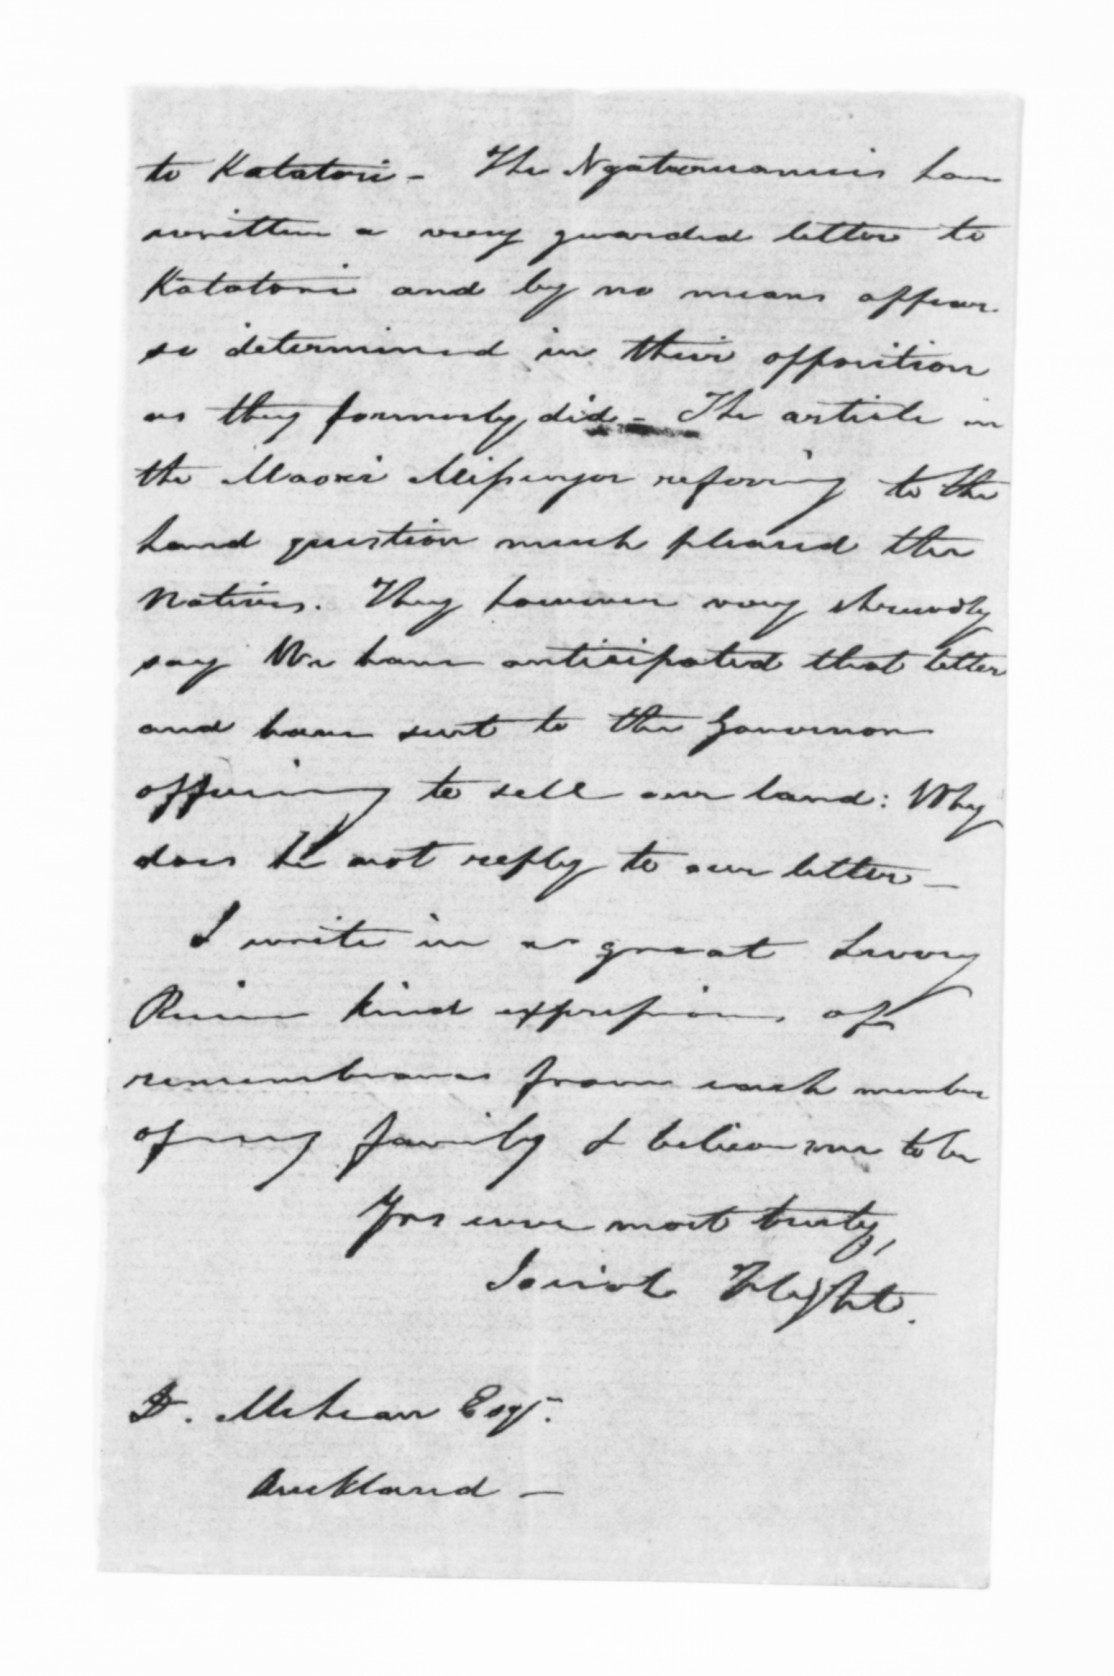 to Katatori - The Ngatiruanuis have
written a very guarded letter to
Katatori and by no means appear
so determined in their opposition
as they formerly did - The article in
the Maori Messenger referring to the
Land question much pleased the
Natives. They however very shrewdly
say We have anticipated that letter
and have sent to the Governor
offering to sell our land: Why
does he not reply to our letter -
I write in a great hurry
Receive kind expressions of
remembrance from each member
of my family & believe me to be
Yrs ever most truly,
Josiah Flight.
D. McLean Esqr.
Auckland -